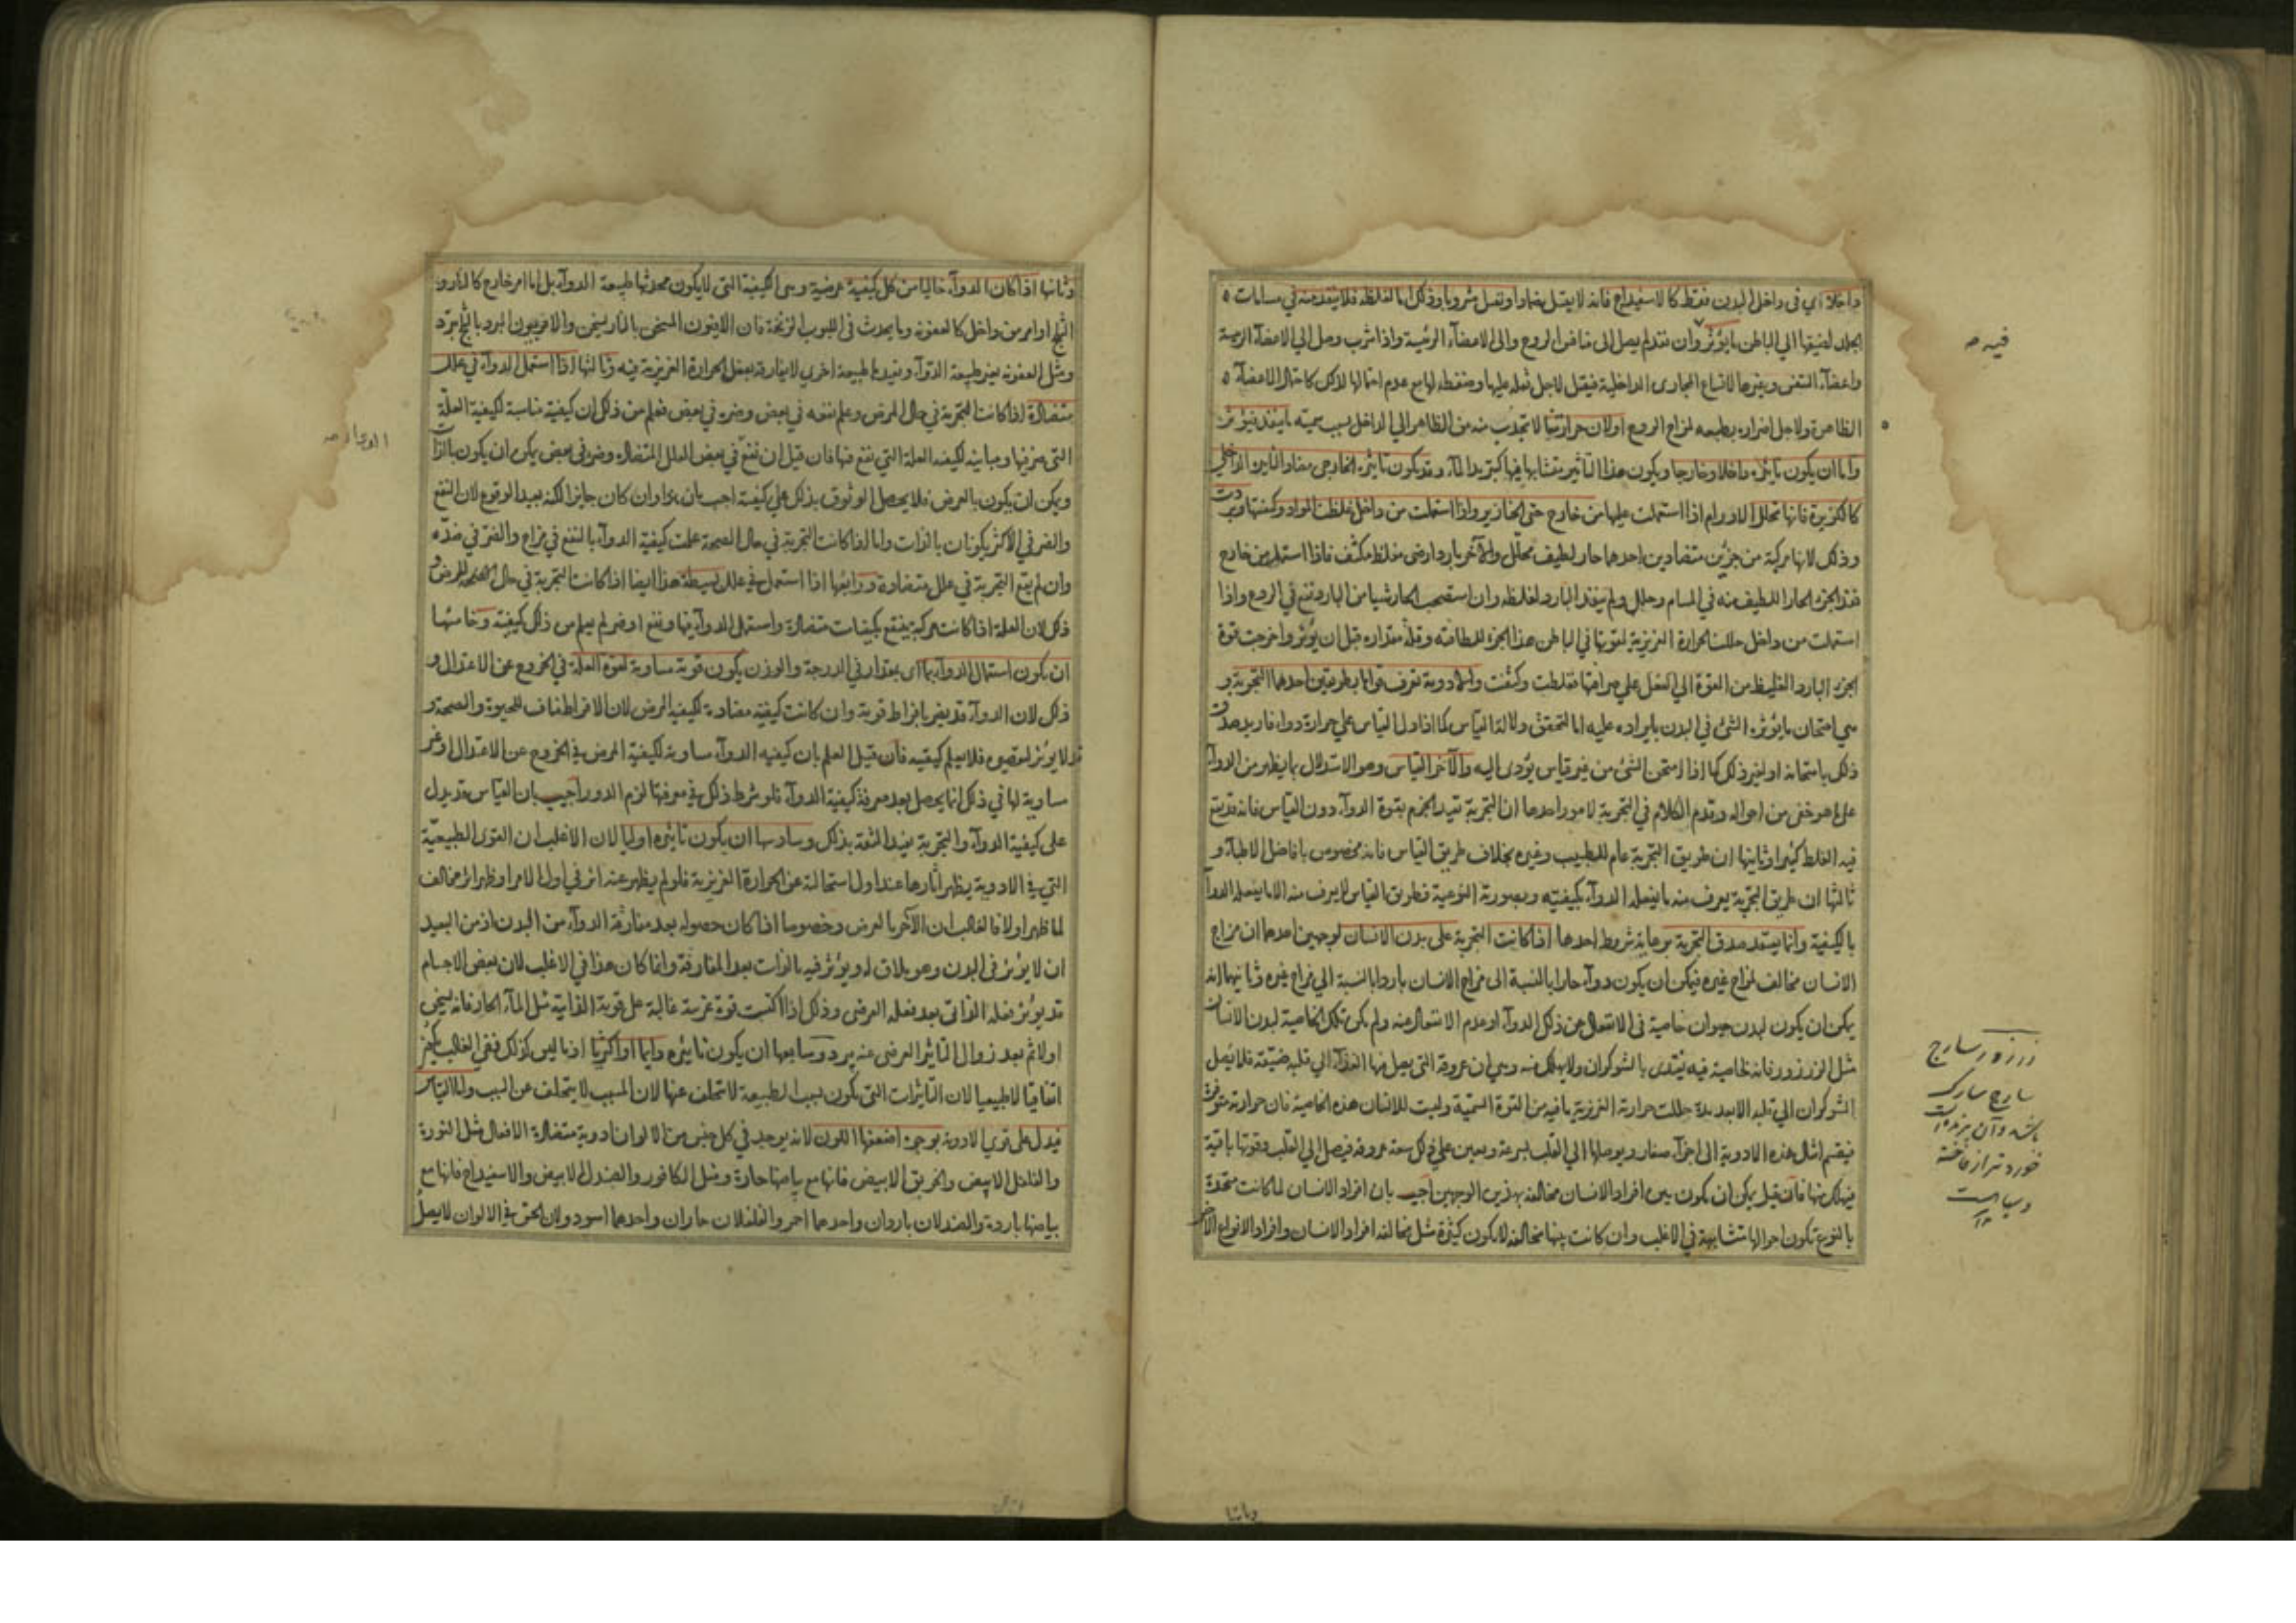 داخلا اي في داخل البدن فقط كالاسفيداج فانه لا يقتل ضمادا ويقتل مشروبا وذلك اما لغلظه فلا ينفذ منه في مسامات
الجلد لضيقها الي الباطن ما يؤثر وان نفذ لم يصل الى منافس الروح والى الاعضآء الرئيسة واذا شرب وصل الي الاعضآء الرئيسة
واعضآء التنفس وغيرها لاتساع المجارى الداخلية فيقتل لاجل ثقله عليها وضغطه لها مع عدم احتمالها لذلك كاحتمال الاعضآء
الظاهرة ولاجل اضراره بطبعه لمزاج الروح اولان حرارتنا لا تجذب منه من الظاهر الي الداخل بسبب سميته ما ينفذ فيؤثر
واما ان يكون تاثيره داخلا وخارجا ويكون هذا التاثير متشابها فيها كتبريد المآء وقد يكون تاثيره الخارجي مضادا لتاثيره الداخلي
كالكزبرة فانها تحلل الاورام اذا استعملت عليها من خارج حتى الخنازير واذا استعملت من داخل غلظت المواد وكثفتها وبردت
وذلك لانها مركبة من جزئين متضادين احدهما حار لطيف محلل والآخر بارد ارضى مغلظ مكثف فاذا استعمل من خارج
نفذ الجزء الحار اللطيف منه في المسام وحلل ولم ينفذ البارد لغلظه وان استصحب الحار شيا من البارد نفع في الردع واذا
استعملت من داخل حللت الحرارة الغريزية لقوتها في الباطن هذا الجزء للطافته وقلة مقداره قبل ان يؤثر واخرجت قوة
الجزء البارد الغليظ من القوة الي الفعل علي صرافتها فغلظت وكثفت والادوية تعرف قواها بطريقين احدهما التجربة و
هي امتحان ما يؤثره الشئ في البدن بايراده عليه اما لتحقق دلالة القياس كما اذا دل القياس علي حرارة دوا فاريد صدق
ذلك بامتحانه او لغير ذلك كما اذا امتحن الشئ من غير قياس يؤدى اليه والآخر القياس وهو الاستدلال بما يظهر من الدوآ
علي ما هو خفي من احواله وقدم الكلام في التجربة لامور احدها ان التجربة تفيد الجزم بقوة الدوآء دون القياس فانه قد يقع
فيه الغلط كثيرا وثانيها ان طريق التجربة عام للطبيب وغيره بخلاف طريق القياس فانه مخصوص بافاضل الاطبآء و
ثالثها ان طريق التجربة يعرف منه ما يفعله الدوآء بكيفيته وبصورته النوعية وطريق القياس لا يعرف منه الا ما يفعله الدوآ
بالكيفية وانما يعتمد صدق التجربة برعاية شروط احدها اذا كانت التجربة على بدن الانسان لوجهين احدهما ان مزاج
الانسان مخالف لمزاج غيره فيمكن ان يكون دوآء حارا بالنسبة الى مزاج الانسان باردا بالنسبة الي مزاج غيره وثانيهما انه
يمكن ان يكون لبدن حيوان خاصية في الانفعال عن ذلك الدوآء او عدم الانفعال عنه ولم يكن تلك الخاصية لبدن الانسان
مثل الزرزور فانه لخاصية فيه يغتذى بالشوكران ولا يهلك منه وهي ان عروقه التي يصل منها الغذآء الي قلبه ضيقة فلا يصل
الشوكران الي قلبه الا بعد مدة حللت حرارته الغريزية ما فيه من القوة السمية وليست للانسان هذه الخاصية فان حرارته متوفرة
فيقسم امثال هذه الادوية الى اجزآء صغار ويوصلها الي القلب بسرعة ويعين علي ذلك سعة عروقه فيصل الي القلب وقوتها باقية
فيهلك منها فان قيل يمكن ان يكون بين افراد الانسان مخالفة بهذين الوجهين اجيب بان افراد الانسان لما كانت متحدة
بالنوع تكون احوالها متشابهة في الاغلب وان كانت بينها مخالفة لا يكون كثيرة مثل مخالفة افراد الانسان وافراد الانواع الاخر
فيه صح
زرزور سارج
سارج سارك
باشد وآن پرنده ايست
خوردتر از فاخته
وسياه است
وثانيها اذا كان الدوآء خاليا من كل كيفية عرضية وهى الكيفية التى لا يكون محدثها طبيعة الدوآء بل اما امر خارج كالنار و
الثلج او امر من داخل كالعفونة وما يحدث في اللبوب الزنخة فان الافيون المسخن بالنار يسخن والافربيون المبرد بالثلج يبرد
ومثل العفونة يغير طبيعة الدوآء ويفيدها طبيعة اخري لا يفارقه بفعل الحرارة الغريزية فيه وثالثها اذا استعمل الدوآء في علل
متضادة اذا كانت التجربة في حال المرض وعلم نفعه في بعض وضره في بعض فعلم من ذلك ان كيفيته مناسبة لكيفية العلة
التى يضر فيها ومباينة لكيفية العلة التي ينفع فيها فان قيل ان نفع في بعض العلل المتضادة وضر في بعض يمكن ان يكون بالذات
ويمكن ان يكون بالعرض فلا يحصل الوثوق بذلك علي كيفيته اجيب بان هذا وان كان جايزا لكنه بعيد الوقوع لان النفع
والضر في الاكثر يكونان بالذات واما اذا كانت التجربة في حال الصحة علمت كيفية الدوآء بالنفع في مزاج والضر في ضده
وان لم يقع التجربة في علل متضادة ورابعها اذا استعمل في علل بسيطة هذا ايضا اذا كانت التجربة في حال المرض و
ذلك لان العلة اذا كانت مركبة ينتفع بكيفيات متضادة واستعمل الدوآء فيها ونفع او ضر لم يعلم من ذلك كيفيته وخامسها
ان يكون استعمال الدوآء بما اى بمقدار في الدرجة والوزن يكون قوته مساوية لقوة العلة في الخروج عن الاعتدال و
ذلك لان الدوآء قد يضر بافراط قوته وان كانت كيفيته مضادة لكيفية المرض لان الافراط مناف للحيوة والصحة و
قد لا يؤثر لقصوره فلا يعلم كيفيته فان قيل العلم بان كيفية الدوآء مساوية لكيفية المرض في الخروج عن الاعتدال او غير
مساوية لها في ذلك انما يحصل بعد معرفة كيفية الدوآء فلو شرط ذلك في معرفتها لزم الدور اجيب بان القياس قد يدل
على كيفية الدوآء والتجربة يفيد الثقة بذلك وسادسها ان يكون تاثيره اوليا لان الاغلب ان القوى الطبيعية
التي في الادوية يظهر آثارها عند اول استحالته عن الحرارة الغريزية فلو لم يظهر عنه اثر في اول الامر او ظهر اثر مخالف
لما ظهر اولا فالغالب ان الآخر بالعرض وخصوصا اذا كان حصوله بعد مفارقة الدوآء من البدن اذ من البعيد
ان لا يؤثر في البدن وهو ملاق له ويؤثر فيه بالذات بعد المفارقة وانما كان هذا في الاغلب لان بعض الاجسام
قد يؤثر فعله الذاتي بعد فعله العرضى وذلك اذا اكتسب قوة غريبة غالبة على قوته الذاتية مثل المآء الحار فانه يسخن
اولا ثم بعد زوال التاثير العرضى عنه يبرد وسابعها ان يكون تاثيره دايما او اكثريا اذ ما ليس كذلك ففي الغالب يكون
اتفاقيا لا طبيعيا لان التاثيرات التي تكون بسبب الطبيعة لا تتخلف عنها لان المسبب لا يتخلف عن السبب واما القياس
فيدل على قوي الادوية بوجوه اضعفها اللون لانه يوجد في كل جنس من الالوان ادوية متضادة الافعال مثل النورة
والفلفل الابيض والخربق الابيض فانها مع بياضها حادة ومثل الكافور والصندل الابيض والاسفيداج فانها مع
بياضها باردة والصندلان باردان واحدهما احمر والفلفلان حاران واحدهما اسود ولان الحق في الالوان لا يصل